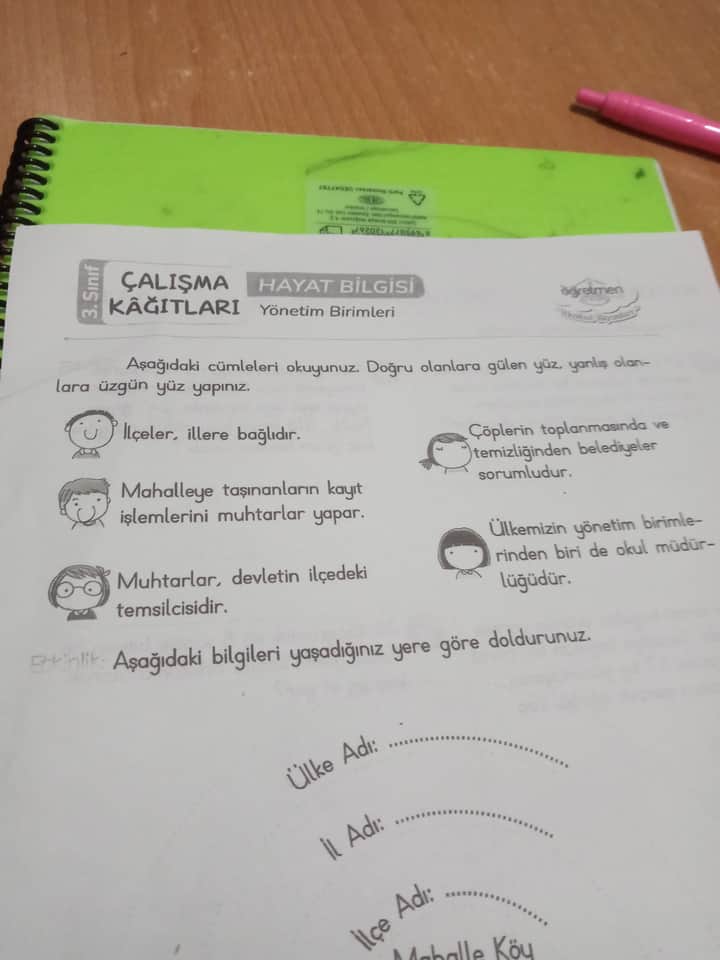 3. Sınıf
ÇALIŞMA
KÂĞITLARI
HAYAT BİLGİSİ
Yönetim Birimleri
öğretmen
Aşağıdaki cümleleri okuyunuz. Doğru olanlara gülen yüz, yanlış olan-
lara üzgün yüz yapınız.
İlçeler, illere bağlıdır.
Mahalleye taşınanların kayıt
işlemlerini muhtarlar yapar.
Muhtarlar, devletin ilçedeki
temsilcisidir.
Çöplerin toplanmasında ve
temizliğinden belediyeler
sorumludur.
Ülkemizin yönetim birimle-
rinden biri de okul müdür-
lüğüdür.
Etkinlik Aşağıdaki bilgileri yaşadığınız yere göre doldurunuz.
Ülke Adı: ........................
İl Adı: ........................
İlçe Adı: ........................
Mahalle Köy